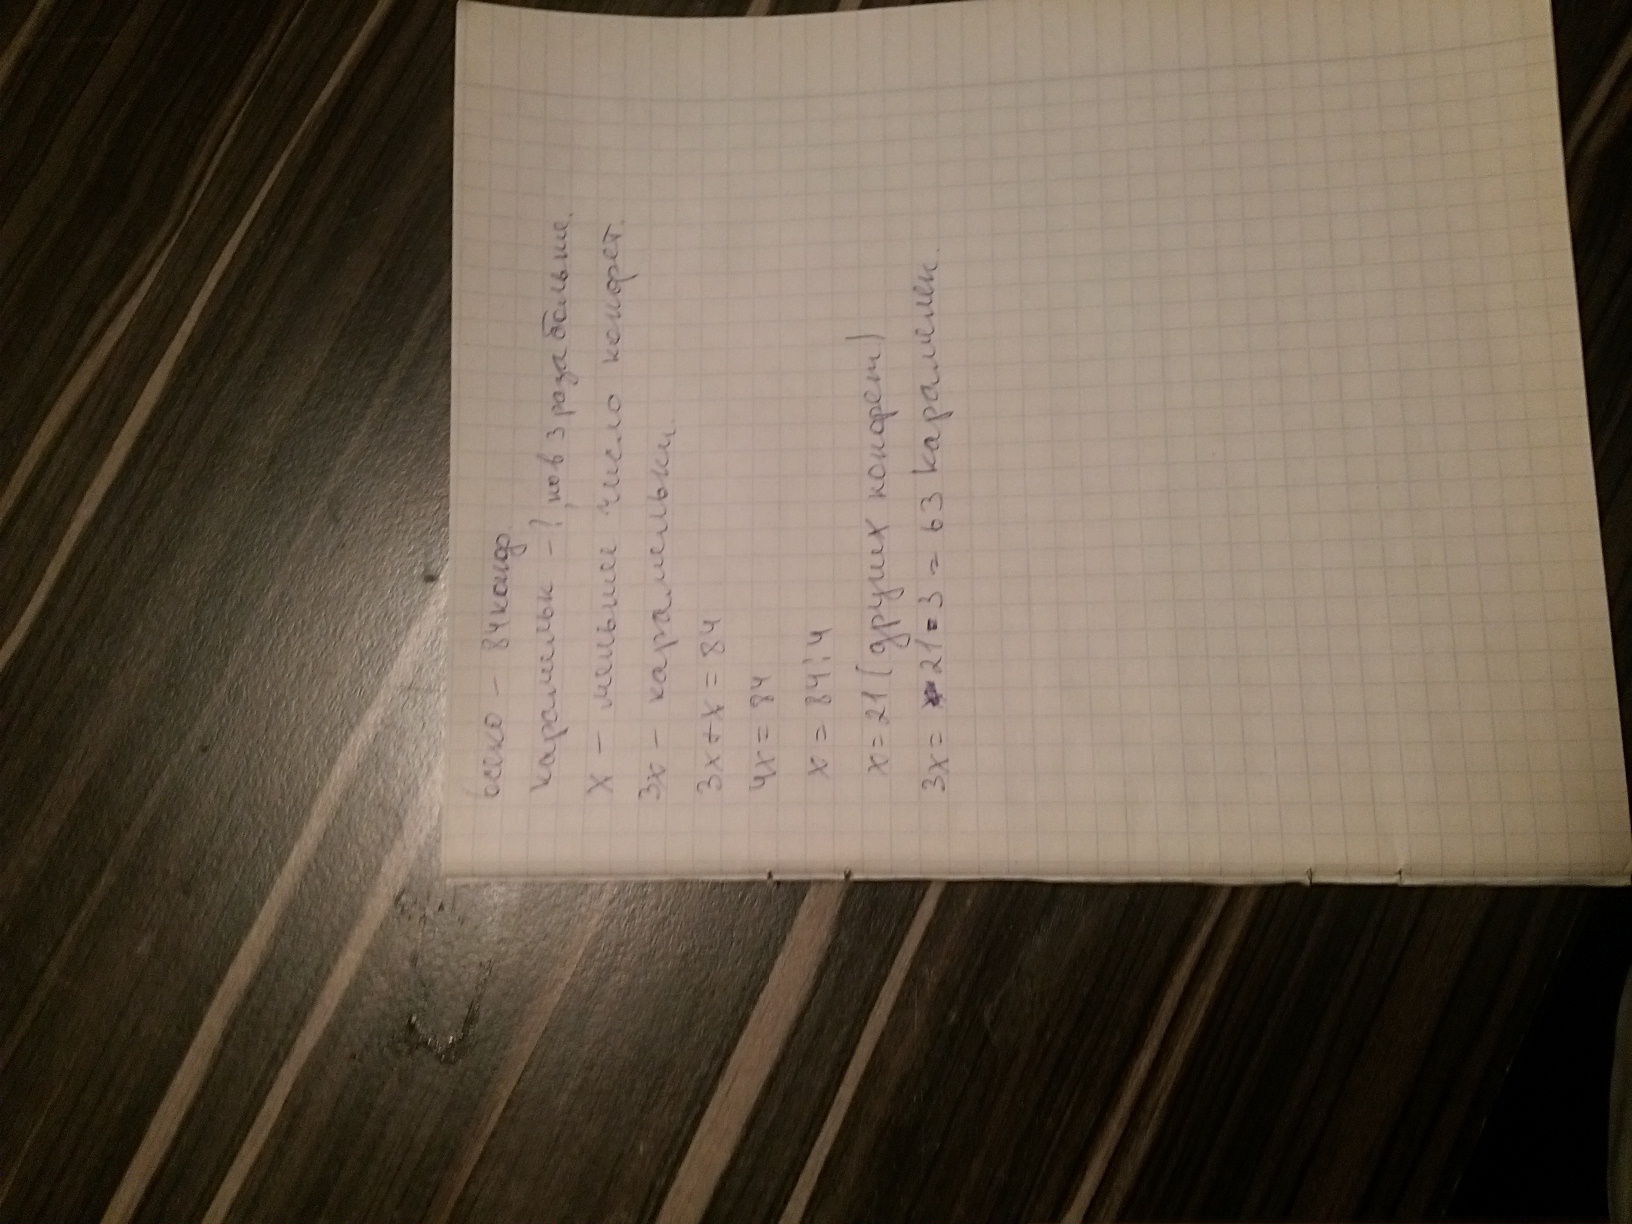 всего - 84 конф.
карамельк - ?, но в 3 раза больше.
х - меньшее число конфет.
3х - карамельки.
3х+х=84
4х=84
х=84:4
х=21(других конфет)
3х= 21·3=63 карамели.